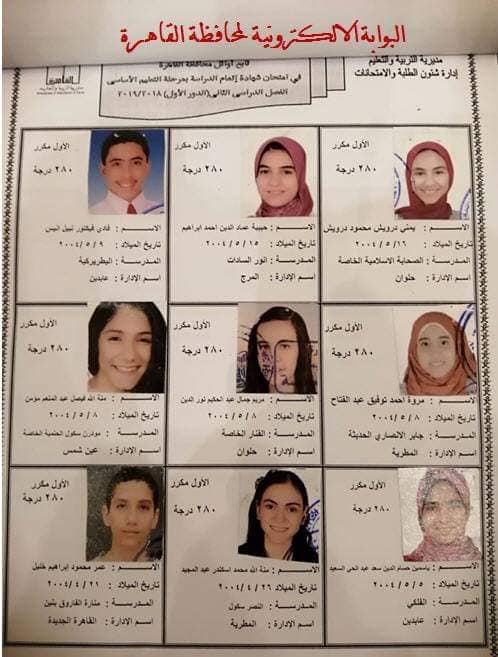 البوابة الالكترونية لمحافظة القاهرة
مديرية التربية والتعليم
إدارة شئون الطلبة والامتحانات
تابع أوائل محافظة القاهرة
في امتحان شهادة إتمام الدراسة بمرحلة التعليم الأساسى
الفصل الدراسى الثانى (الدور الأول) ٢٠١٩/٢٠١٨
القاهرة
الأول مكرر
٢٨٠ درجة
الاســـم : يمنى درويش محمود درويش
تاريخ الميلاد : ٢٠٠٤/٥/١٦
المدرسـة : الصحابة الاسلامية الخاصة
اسم الإدارة : حلوان
الأول مكرر
٢٨٠ درجة
الاســـم : حبيبة عماد الدين احمد ابراهيم
تاريخ الميلاد : ٢٠٠٤/٥/١٥
المدرسـة : انور السادات
اسم الإدارة : المرج
الأول مكرر
٢٨٠ درجة
الاســـم : فادي فيكتور نبيل اليس
تاريخ الميلاد : ٢٠٠٤/٥/٩
المدرسـة : البطريركية
اسم الإدارة : عابدين
الأول مكرر
٢٨٠ درجة
الاســـم : مروة احمد توفيق عبد الفتاح
تاريخ الميلاد : ٢٠٠٤/٥/٨
المدرسـة : جابر الانصاري الحديثة
اسم الإدارة : المطرية
الأول مكرر
٢٨٠ درجة
الاســـم : مريم جمال عبد الحكيم نور الدين
تاريخ الميلاد : ٢٠٠٤/٥/٨
المدرسـة : الفنار الخاصة
اسم الإدارة : حلوان
الأول مكرر
٢٨٠ درجة
الاســـم : منة الله فيصل عبد المنعم مؤمن
تاريخ الميلاد : ٢٠٠٤/٥/٨
المدرسـة : مودرن سكول الحلمية الخاصة
اسم الإدارة : عين شمس
الأول مكرر
٢٨٠ درجة
الاســـم : ياسمين حسام الدين سعد عبد الحى السعيد
تاريخ الميلاد : ٢٠٠٤/٥/٥
المدرسـة : الفلكي
اسم الإدارة : عابدين
الأول مكرر
٢٨٠ درجة
الاســـم : منة الله محمد اسكندر عبد المجيد
تاريخ الميلاد : ٢٠٠٤/٤/٢٦
المدرسـة : النصر سكول
اسم الإدارة : المطرية
الأول مكرر
٢٨٠ درجة
الاســـم : عمر محمود إبراهيم خليل
تاريخ الميلاد : ٢٠٠٤/٤/٢١
المدرسـة : منارة الفاروق بنين
اسم الإدارة : القاهرة الجديدة